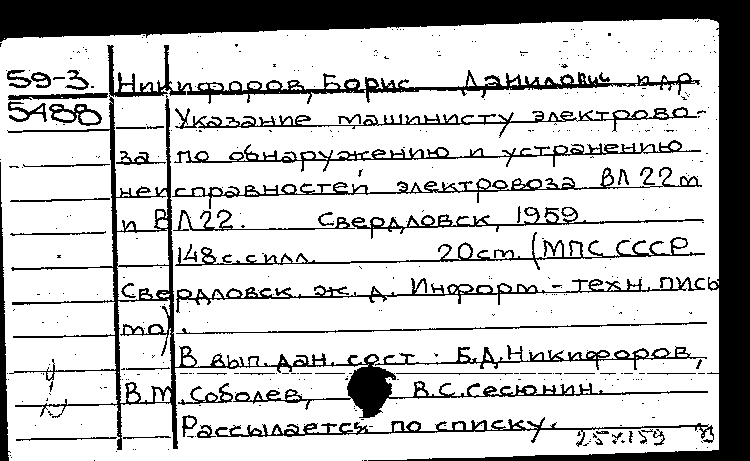 59-3. Никифоров, Борис Данилович и др.
5488 Указание машинисту электрово-
за по обнаружению и устранению
неисправностей электровоза ВЛ 22м
и ВЛ22. Свердловск, 1959.
148 с. с илл. 20 см. (МПС СССР
Свердловск. ж. д. Информ.-техн. пись
мо).
В вып. дан. сост: Б.Д.Никифоров,
2 В.М.Соболев, В.С.Сесюнин.
Рассылается по списку.